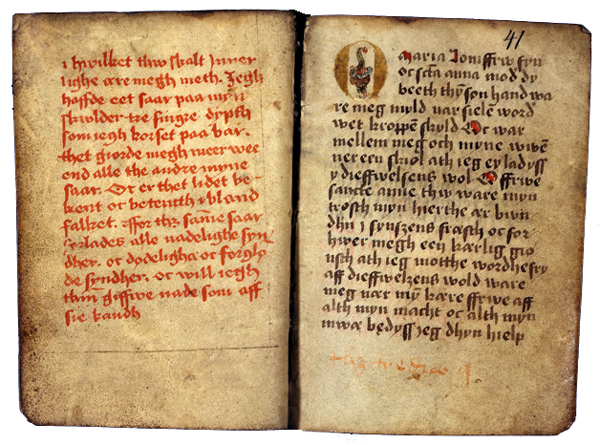 i hwilket thw skalt inner
lighe ære megh meth. Jegh
haffde eet saar paa myn
skulder tre fingre dypth
som iegh korset paa bar.
thet giorde megh meer wee
end alle the andre myne
saar. Oc er thet lidet be
kent oc ibland
falket. ffor thz samme saar
forlades alle nadelighe syn
dher. oc dødelighæ oc forglø
de syndher. oc will iegh
thøm giffwe nade som aff
sie kandh
41
O maria Jomffrw fyn
oc scta anna mod dy
beeth thyn son hand wa
re meg myld nar sielen word
wet kroppen skyld Oc war
mellem meg och myne wwen
ner een skiol ath ieg ey ladyss
y dieffwelsens wol O ffrwe
sancte anne thw ware myn
trøsth myn hierthe ær bwn
dhn i syndzens oc for
hwer megh een kærlig gra
ath ieg motthe wordhe fry
aff dieffwelzens wold ware
meg nær my kære ffrwe aff
alth myn macht oc alth myn
bedyss ieg dhyn hielp